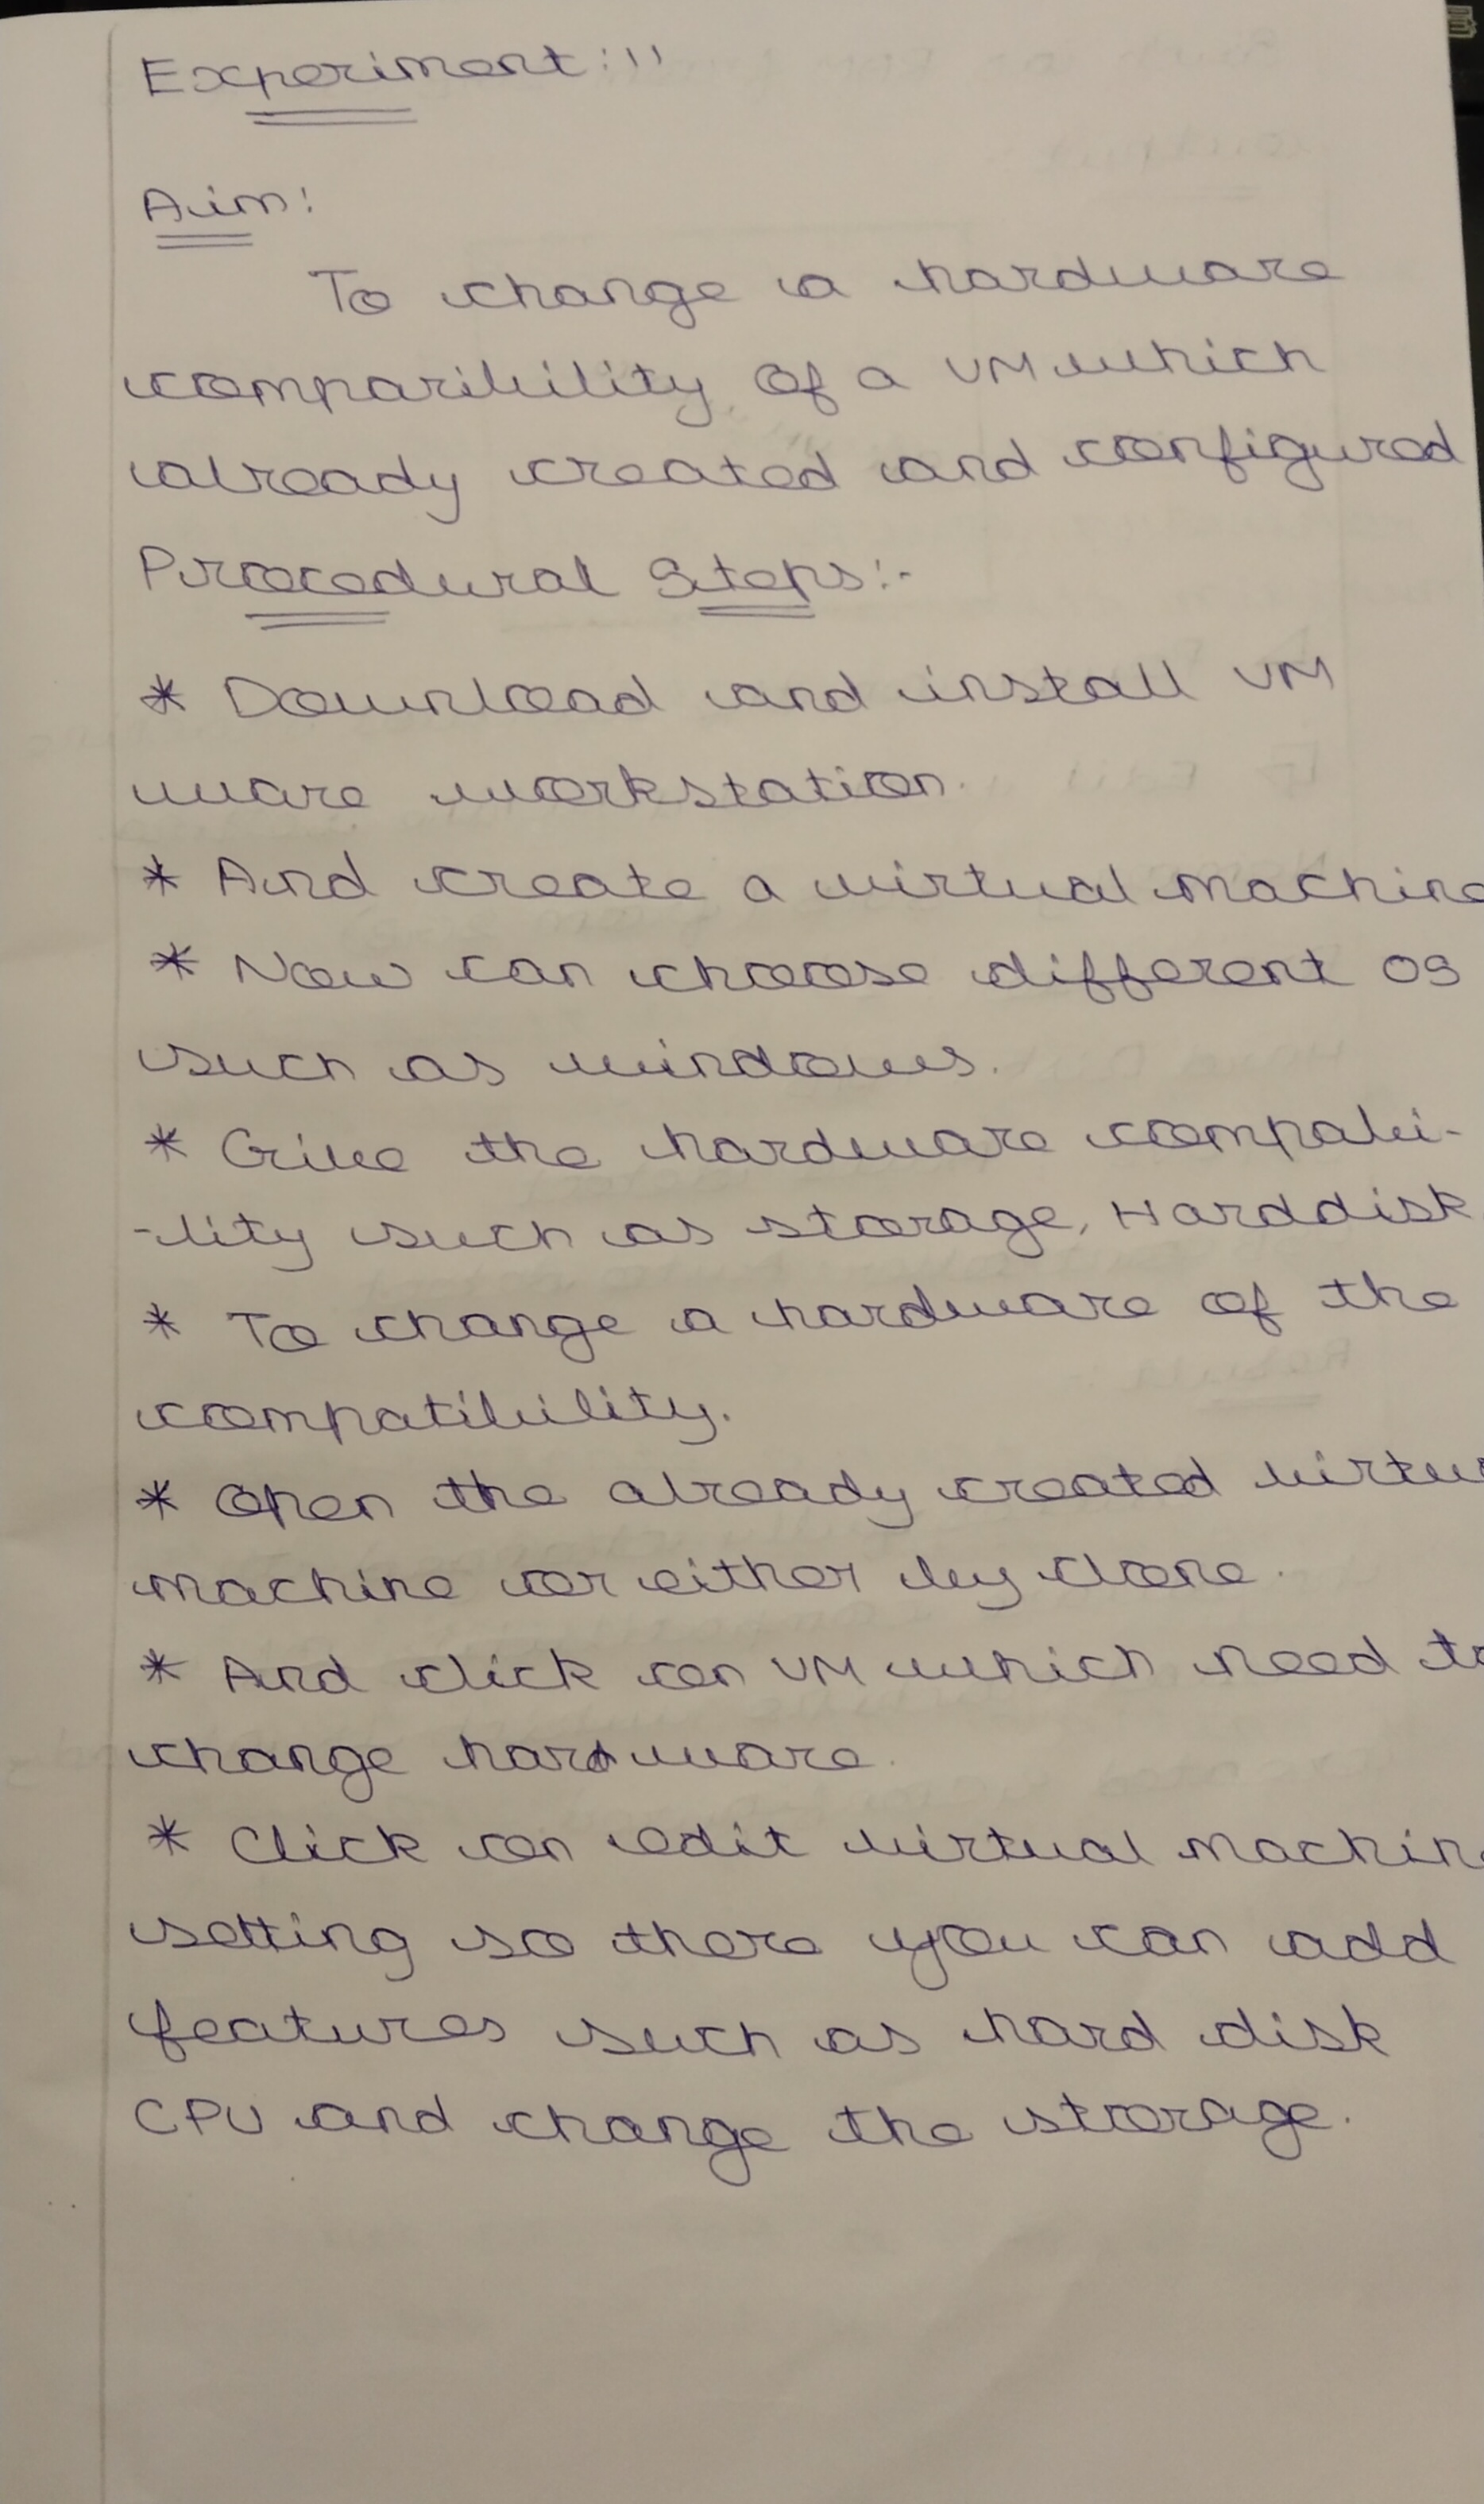 Experiment: 11
Aim:
To change a hardware
comparibility of a VM which
already created and configured
Procedural Steps:-
* Download and install VM
ware workstation.
* And create a virtual machine
* Now can choose different OS
such as windows.
* Give the hardware compabi-
-lity such as storage, Harddisk
* To change a hardware of the
compatibility.
* Open the already created virtu
machine or either by clone.
* And click on VM which need to
change hardware.
* Click on edit virtual machin
setting so there you can add
features such as hard disk
CPU and change the storage.